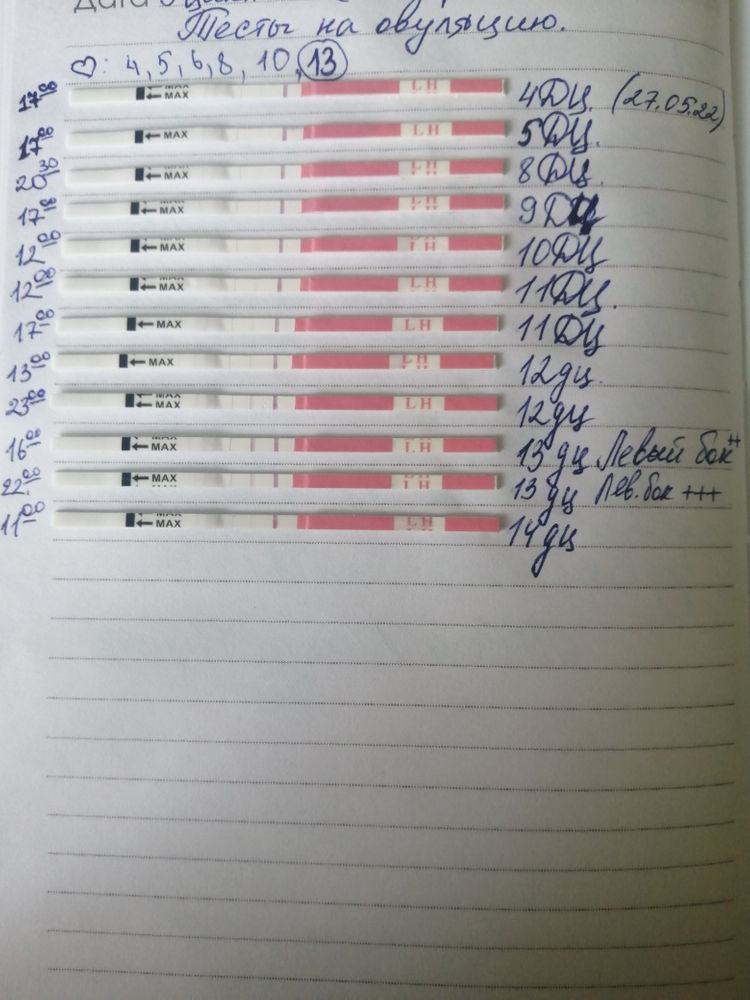 Тесты на овуляцию.
♡: 4, 5, 6, 8, 10, 13
17⁰⁰ MAX ← MAX LH 4ДЦ. (27.05.22)
17⁰⁰ ← MAX LH 5ДЦ.
20³⁰ ← MAX LH 8ДЦ.
17⁰⁰ ← MAX LH 9ДЦ
12⁰⁰ ← MAX LH 10ДЦ
12⁰⁰ ← MAX LH 11ДЦ.
17⁰⁰ ← MAX LH 11ДЦ
13⁰⁰ ← MAX LH 12дц.
23⁰⁰ MAX ← MAX LH 12дц
16⁰⁰ MAX ← MAX LH 13дц Левый бок ++
22⁰⁰ ← MAX LH 13дц Лев. бок +++
11⁰⁰ MAX ← MAX LH 14дц